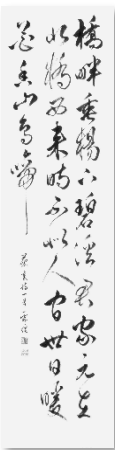 橋畔垂楊下碧溪君家元在
北橋西來時不似人間世日暖
花香山鳥啼
蔡襄詩一首